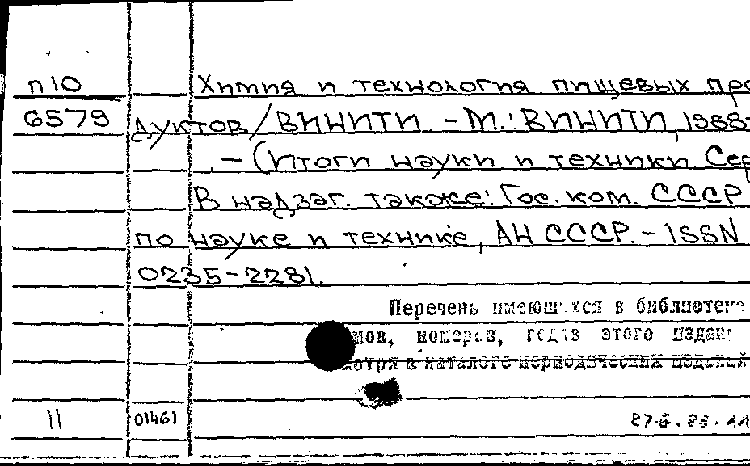 п10 Химия и технология пищевых про
6579 дуктов/ВИНИТИ. - М.: ВИНИТИ, 1988-
. - (Итоги науки и техники Сер
В надзаг. также: Гос. ком. СССР
по науке и технике, АН СССР. - ISSN
0235-2281.
Перечень имеющихся в библиотеке
мов, номеров, годов этого издан
отри в каталоге периодических изданий
11 01461